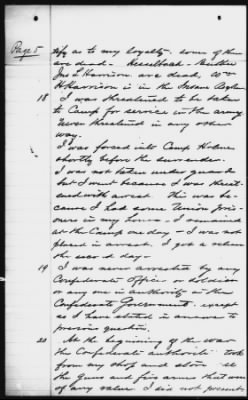 Page 5
tify as to my loyalty - some of them
are dead - Hesselback - Butler
Jno L Harrison are dead, Wm
H Harrison is in the Insane Asylum
18 I was threatened to be taken
to Camp for service in the army
never threatened in any other
way.
I was forced into Camp Holmes
shortly before the surrender.
I was not taken under guard
but I went because I was threat-
ened with arrest. this was be-
cause I had some Union Pris-
oners in my house - I remained
at the Camp one day - I was not
placed in arrest. I got a release
the second day -
19 I was never arrested by any
Confederate officer or soldier
or any one in authority in the
Confederate Government - except
as I have stated in answer to
previous question.
20 At the beginning of the war
the Confederate authorities took
from my shop and store all
the guns and fire arms that were
of any value. I did not